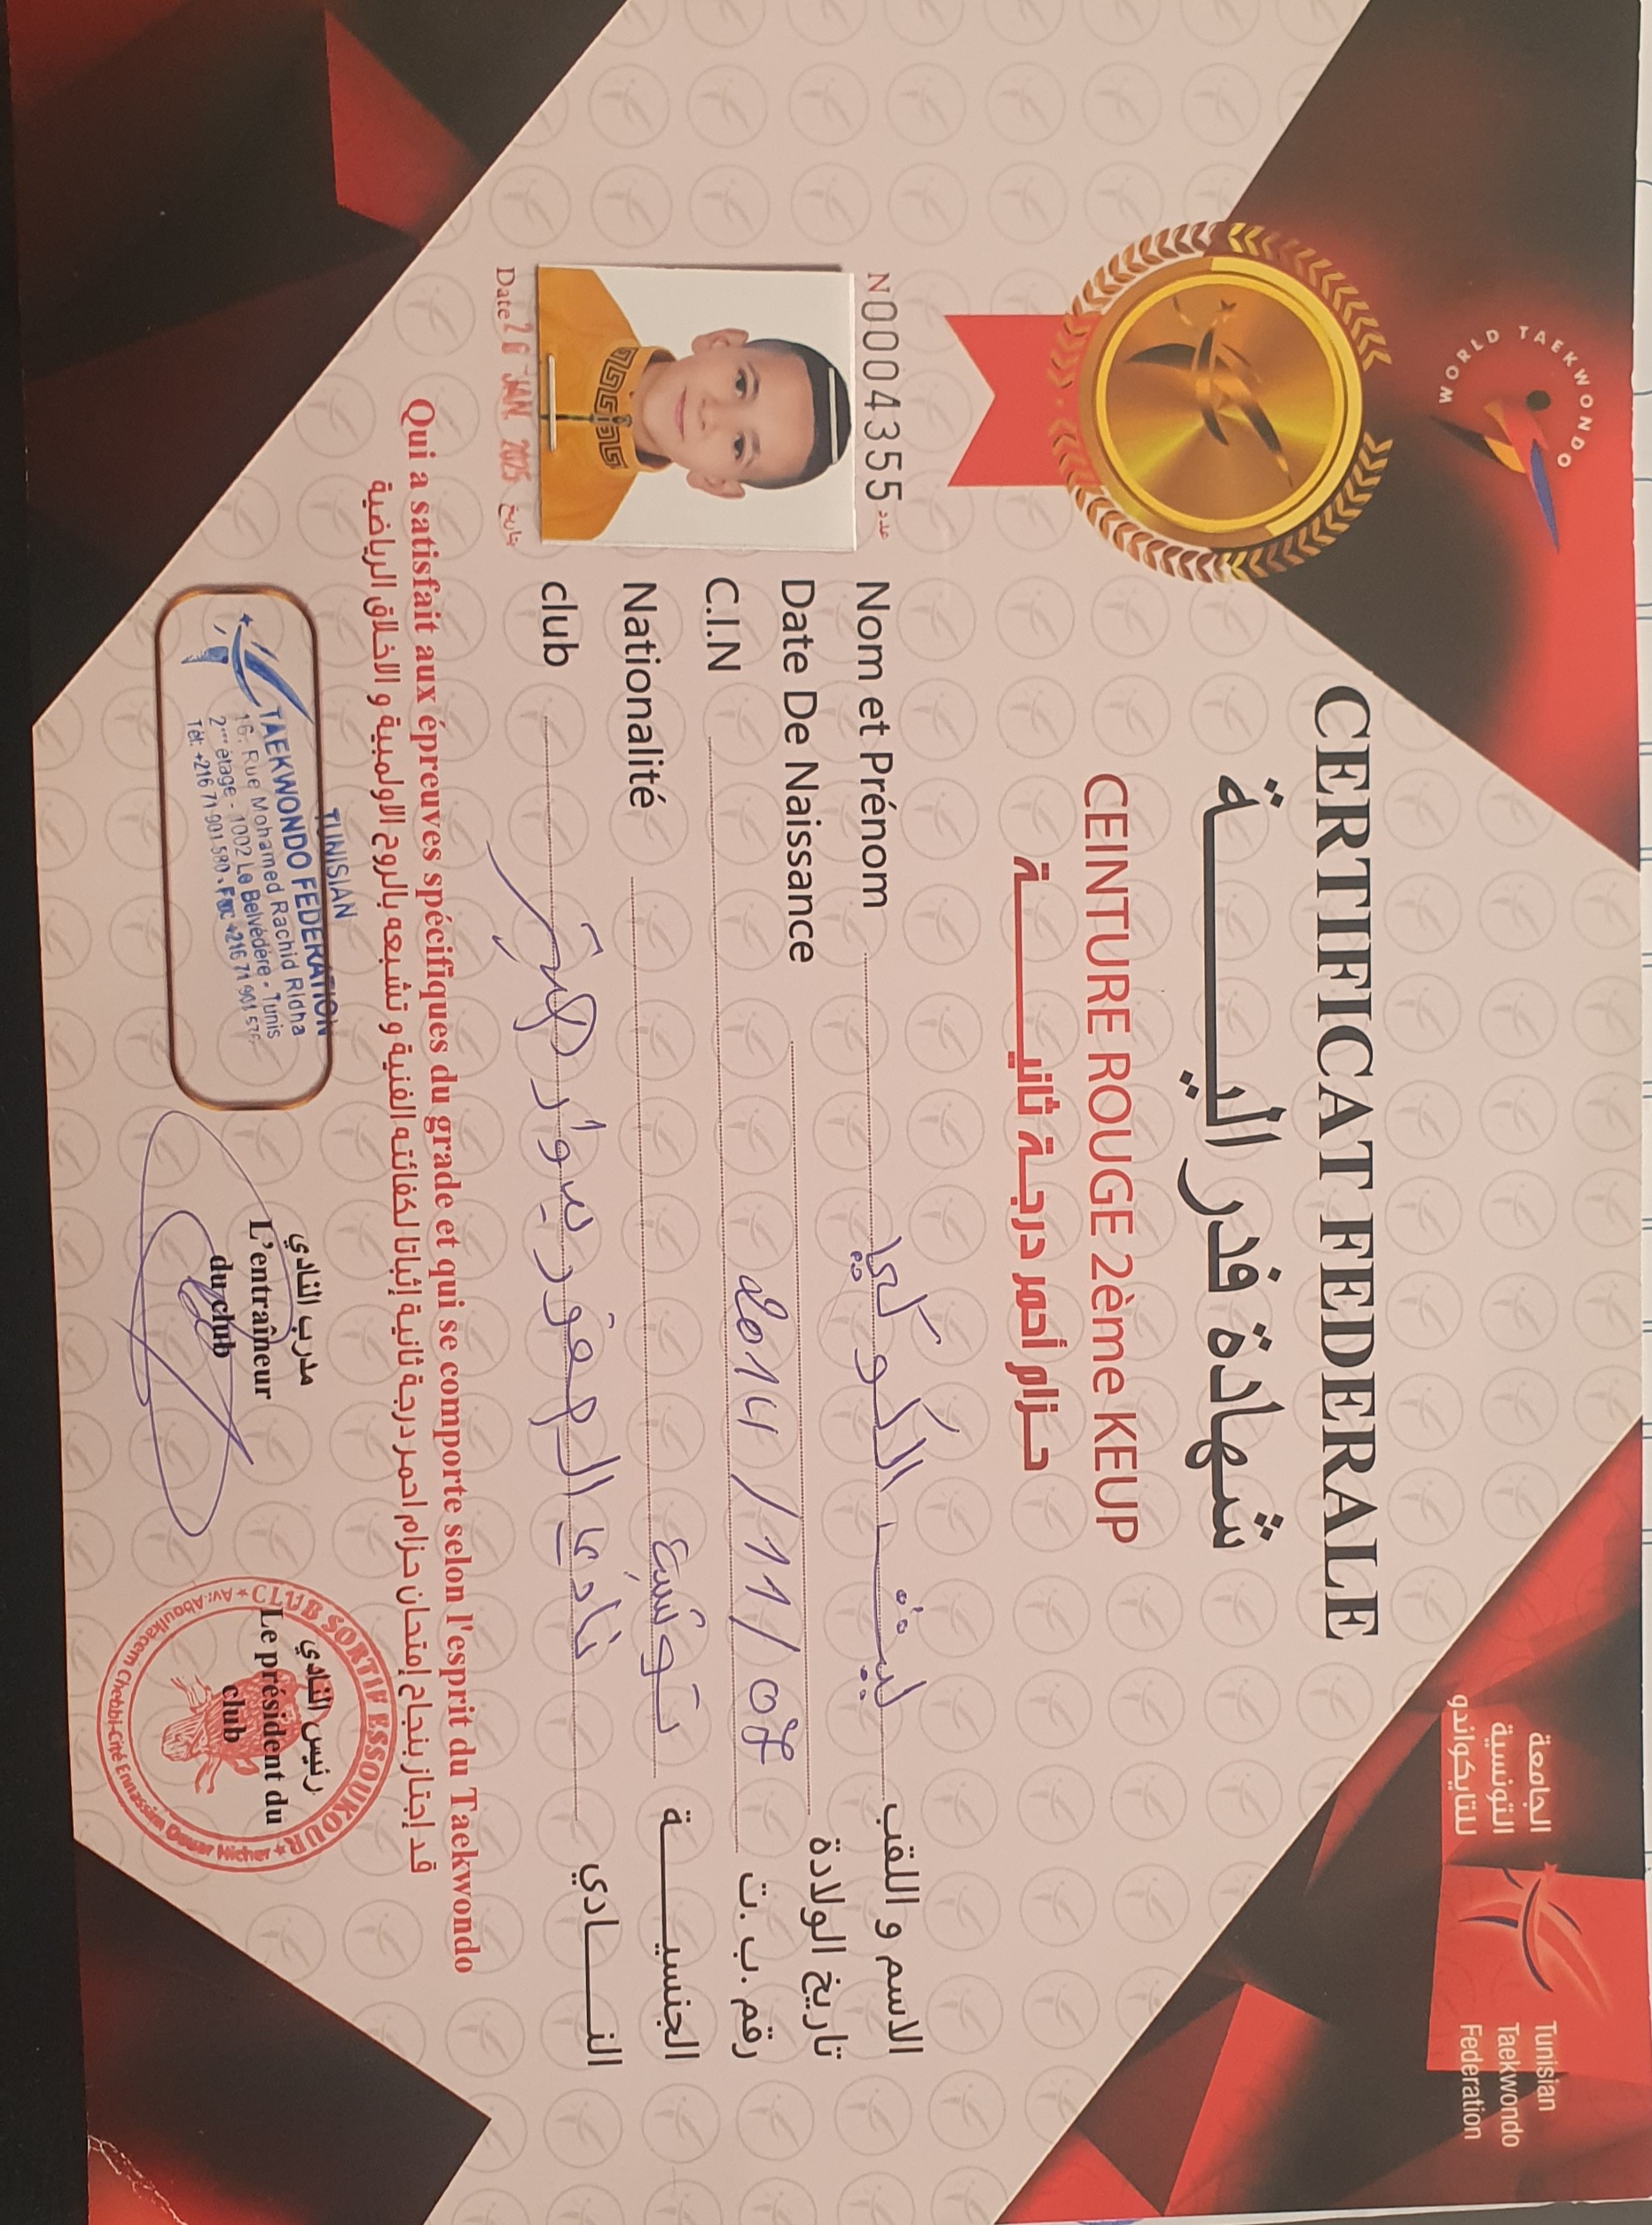 WORLD TAEKWONDO
الجامعة
التونسية
للتايكواندو
Tunisian
Taekwondo
Federation
CERTIFICAT FEDERALE
شهادة فدراليـــــــة
CEINTURE ROUGE 2ème KEUP
حـزام أحمر درجـة ثانيـــــــة
N00004355 عدد
Nom et Prénom ليث الكوكي الاسم و اللقب
Date De Naissance تاريخ الولادة
C.I.N 2014/11/07 رقم.ب.ت
Nationalité تونسية الجنسيـــــة
club النـــــادي
Date 20 JAN 2025 بتاريخ
Qui a satisfait aux épreuves spécifiques du grade et qui se comporte selon l'esprit du Taekwondo
قد إجتاز بنجاح إمتحان حزام احمر درجة ثانية إثباتا لكفائته الفنية و تشبعه بالروح الاولمبية و الاخلاق الرياضية
TUNISIAN
TAEKWONDO FEDERATION
16, Rue Mohamed Rachid Ridha
2ème étage - 1002 Le Belvédère - Tunis
Tél: +216 71 901 580 - Fax: +216 71 901 576
مدرب النادي
L'entraîneur
du club
رئيس النادي
Le président du
club
CLUB SORTIF ESSOUKOUR
Av: Aboulkacem Chebbi-Cité Ennassim Douar Hicher